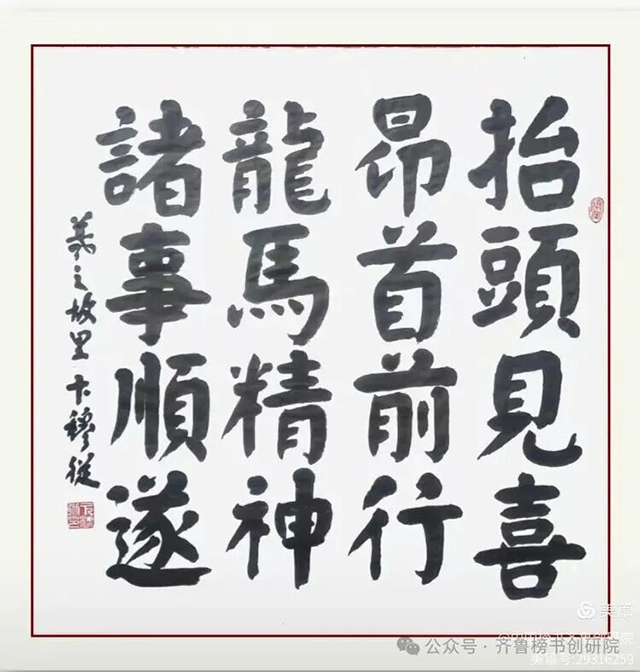 抬頭見喜
昂首前行
龍馬精神
諸事順遂
羲之故里卞穆從
公众号·齐鲁榜书创研院
美篇号:29316259